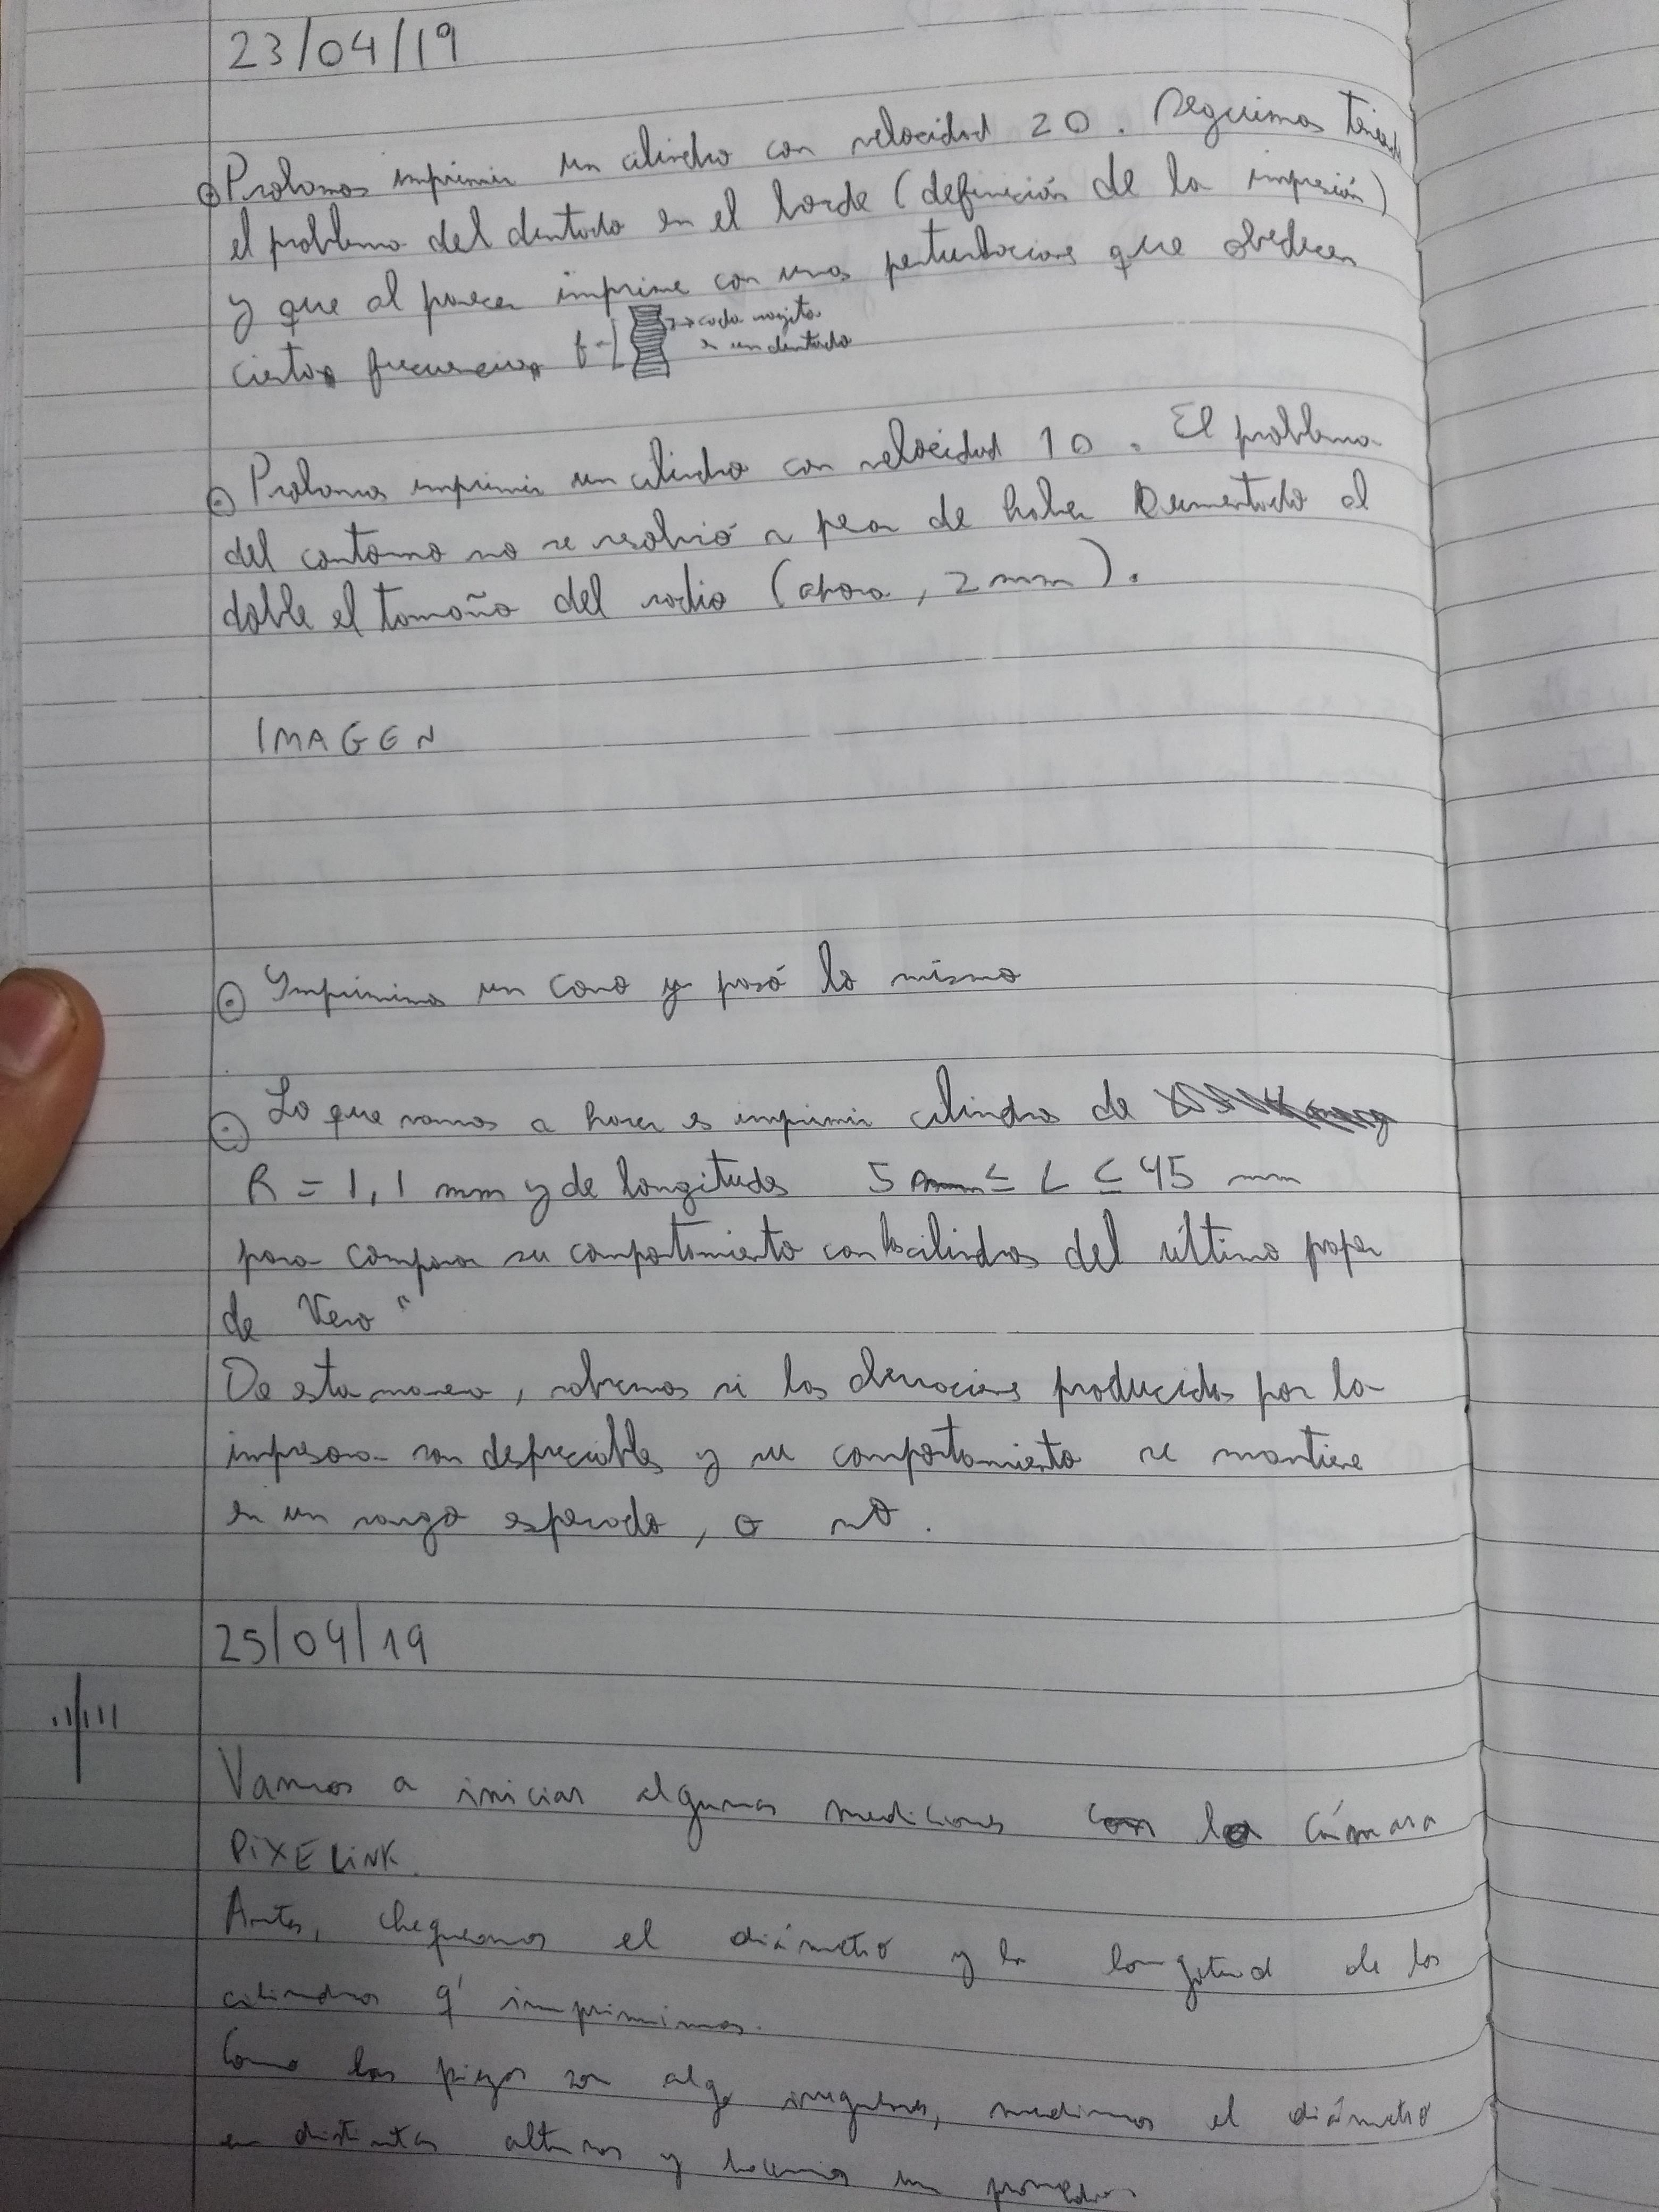 23/04/19
Probamos imprimir un cilindro con velocidad 20. Seguimos teniendo
el problema del dentado en el borde (definición de la impresión)
y que al parecer imprime con unas perturbaciones que obedecen
ciertas frecuencias f
→ cada rayita
es un dentado
Probamos imprimir un cilindro con velocidad 10. El problema
del contorno no se resolvió a pesar de haber aumentado al
doble el tamaño del radio (ahora, 2 mm).
IMAGEN
Imprimimos un cono y pasó lo mismo
Lo que vamos a hacer es imprimir cilindros de
R = 1,1 mm y de longitudes 5 ≤ L ≤ 45 mm
para comparar su comportamiento con los cilindros del último paper
de Vero
De esta manera, sabremos si las desviaciones producidas por la
impresora son despreciables y su comportamiento se mantiene
en un rango esperado, o no.
25/04/19
Vamos a iniciar algunas mediciones con la cámara
PIXELINK.
Antes, chequeamos el diámetro y la longitud de los
cilindros q' imprimimos.
Como las piezas son algo irregulares, medimos el diámetro
en distintas alturas y hacemos un promedio